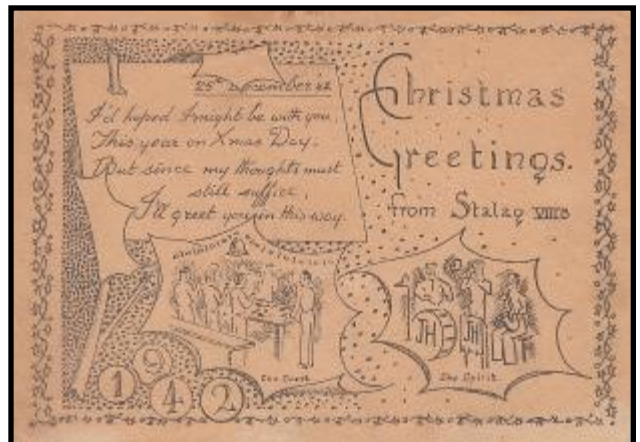 25th December 42
I'd hoped I might be with you
This year on Xmas Day.
But since my thoughts must
still suffice,
I'll greet you in this way.
Christmas
Greetings.
from Stalag VIIIB
JH JH
The Spirit
1942